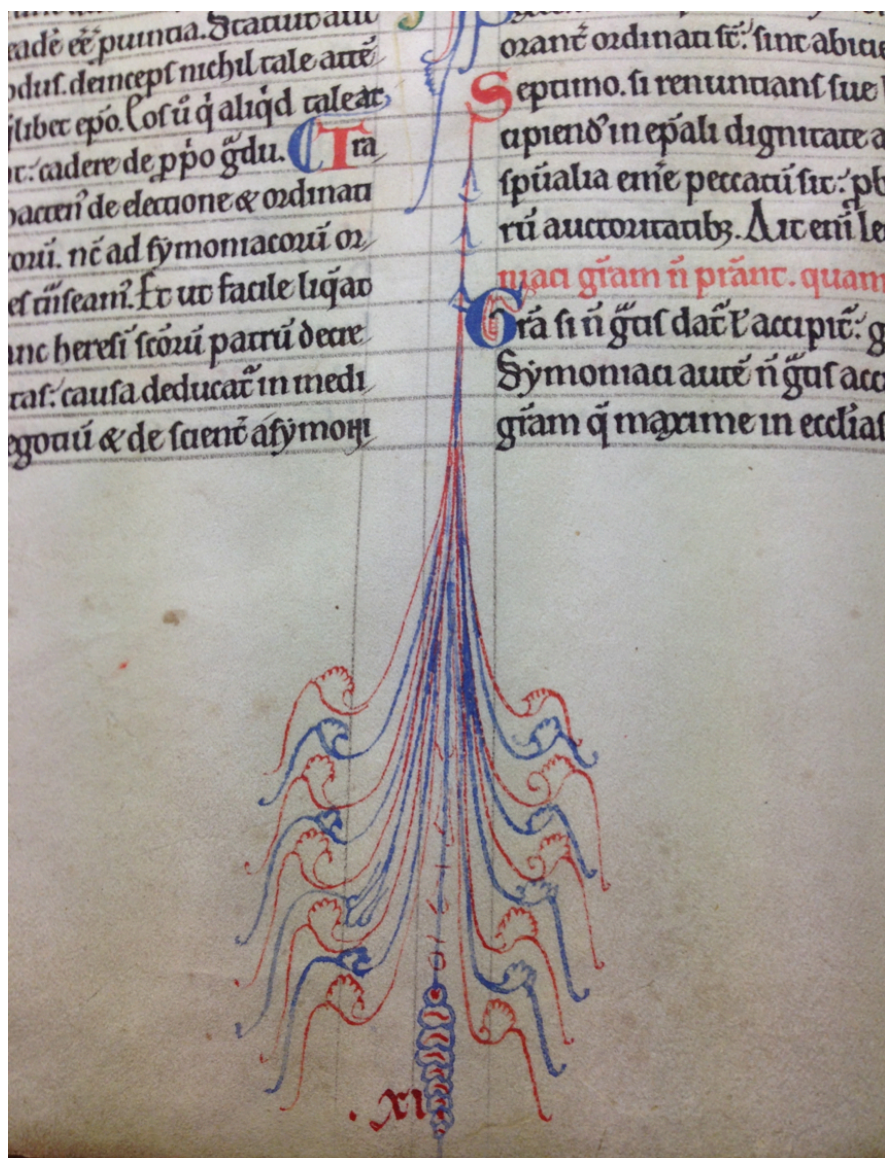 eadē eē puniťia. Statuitati
odus. deinceps nichil tale attē
libet epō. Cosū q̇ aliq̇d taleat
t: cadere de p̱p̱o g̃du. Tra
de electione & ordinati
orū. nē ad symoniacorū or
Et ut facile liq̃at
anc heresi scōrū patrū decre
ras: causa deducat̃ in medi
egotiū & de scient̃ a symoni
orant̃ ordinati st̃: sint abicie
Septimo. si renuntians sue
cipiend̾ in ep̃ali dignitate a
sp̄ualia em̄e peccatū sit: pb
rū auctoritatibꝫ. Ait eni̅ le
niaci gr̄am n̄ prānt. quam
Gr̄a si n̄ g̃tis dat̃ ł accipit̃: g
Symoniaci autē n̄ g̃tis acci
gr̄am q̄ maxime in eccl̄ias
. xi